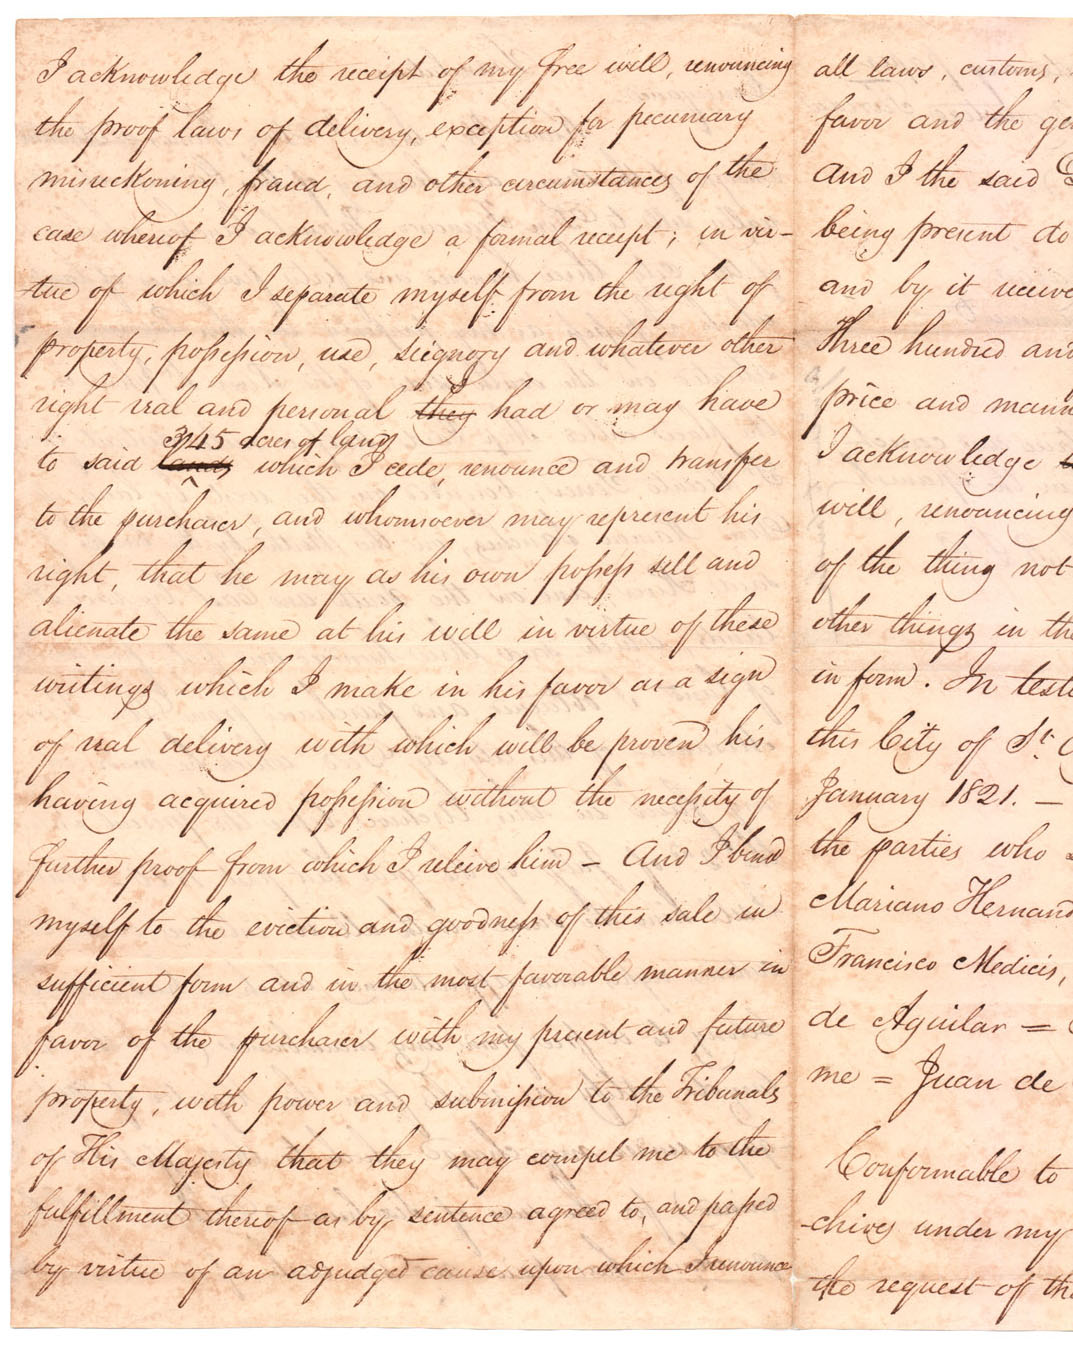 I acknowledge the receipt of my free will, renouncing
the proof laws of delivery, exception for pecuniary
misreckoning, fraud, and other circumstances of the
case whereof I acknowledge a formal receipt; in vir-
-tue of which I separate myself from the right of
property, possession, use, seignory and whatever other
right real and personal they had or may have
3145 acres of land
to said lands which I cede, renounce and transfer
to the purchaser, and whomsoever may represent his
right, that he may as his own possess sell and
alienate the same at his will in virtue of these
writings which I make in his favor as a sign
of real delivery with which will be proven his
having acquired possession without the necessity of
further proof from which I releive him – And I bind
myself to the eviction and goodness of this sale in
sufficient form and in the most favorable manner in
favor of the purchaser with my present and future
property, with power and submission to the Tribunals
of His Majesty that they may compel me to the
fulfillment thereof as by sentence agreed to, and passed
by virtue of an adjudged cause upon which I renounce
all laws, customs,
favor and the ge
And I the said
being present do
and by it receive
Three hundred and
price and mann
I acknowledge
will, renouncing
of the thing not
other things in the
in form. In test
this City of St.
January 1821. —
the parties who
Mariano Hernand
Francisco Medicis,
de Aguilar =
me = Juan de
Conformable to
-chives under my
the request of th